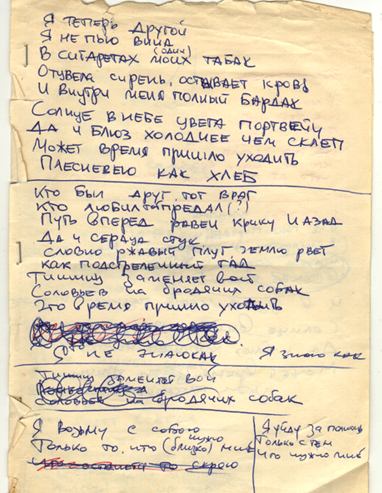 Я теперь другой
Я не пью вина
(одих)
В сигаретах моих табак
Отцвела сирень, остывает кровь
И внутри меня полный бардак
Солнце в небе цвета портвейн
Да и блюз холоднее чем склеп
Может время пришло уходить
Плесневею как хлеб
Кто был друг, тот враг
Кто любил предал (?)
Путь вперед равен крику назад
Да и сердца стук
Словно ржавый плуг землю рвет
Как подстреленный гад
Тишину заменяет вой
Соловьев на бродячих собак
Это время пришло уходить
Я не знаю как Я знаю как
Тишину заменяет вой
Соловьев на бродячих собак
Я возьму с собою
Только то, что (близко) нужно мне
Я уйду за
Только с тем
Что нужно мне